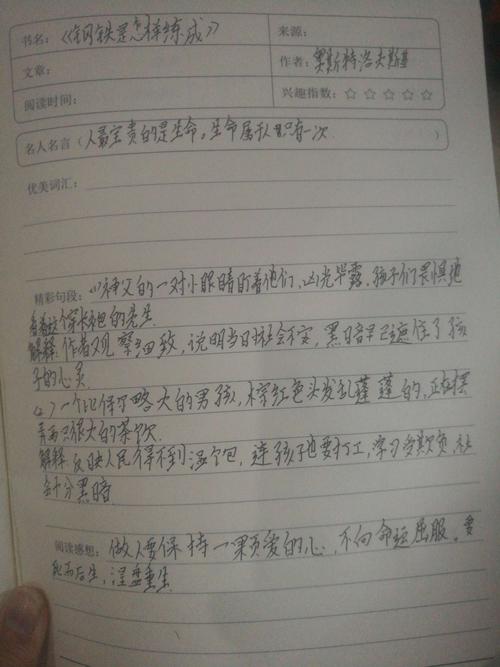 书名：《钢铁是怎样练成》
来源：
文章：
作者：奥斯特洛夫斯基
阅读时间：
兴趣指数：☆ ☆ ☆ ☆ ☆
名人名言（人最宝贵的是生命。生命属于人只有一次 ）
优美词汇：
精彩句段：(1)神父的一对小眼睛盯着他们，凶光毕露，孩子们畏惧地
看着这个穿长袍的先生
解释：作者观察细致，说明当日社会不安，黑暗早已遮住了孩
子的心灵
(2)一个比保尔略大的男孩，棕红色头发乱蓬蓬的，正在摆
弄两只很大的茶饮
解释：反映人民得不到温饱，连孩子也要打工，学习受欺负 社
会十分黑暗
阅读感想：做人要保持一颗爱的心，不向命运屈服。要
死而后生，涅盘重生